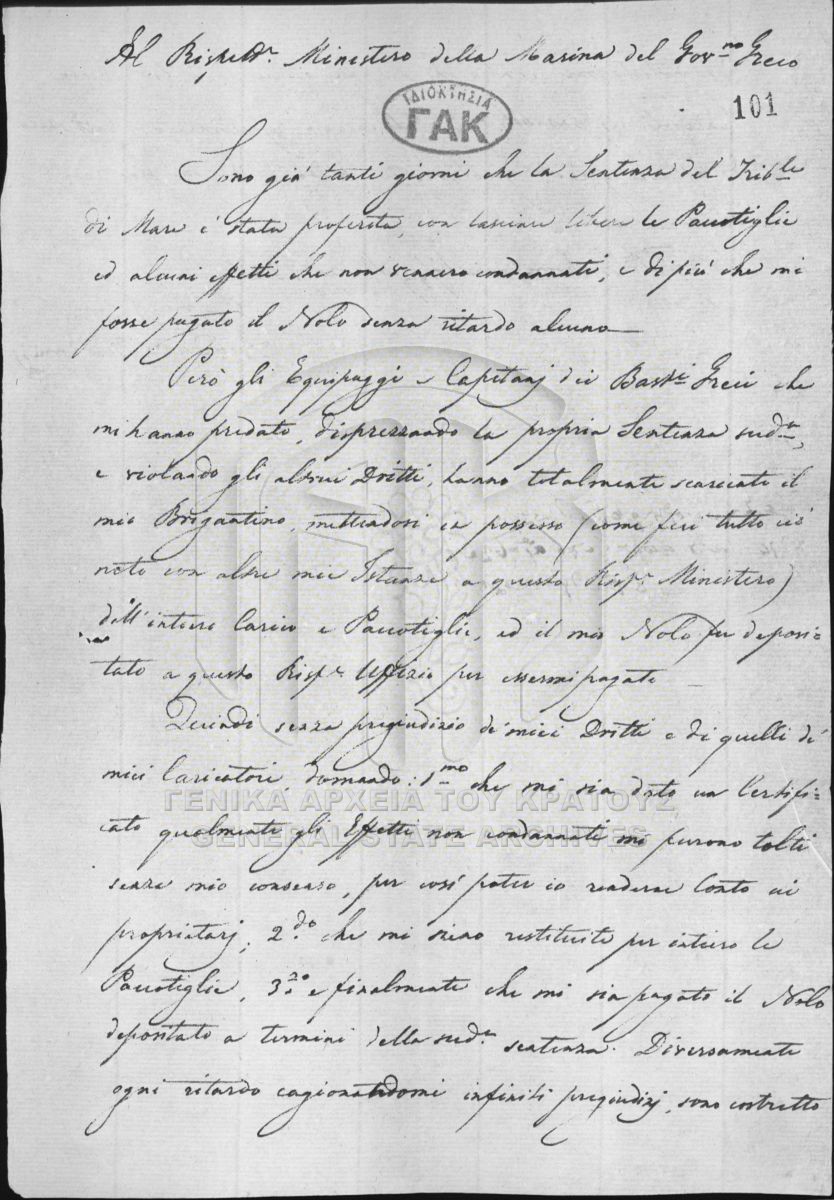 Al Rispett.e Ministero della Marina del Gov.no Greco
ΙΔΙΟΚΤΗΣΙΑ
ΓΑΚ
101
Sono già tanti giorni che la Sentenza del Trib.le
di Mare è stata proferita, con lasciare libere le Paccotiglie
ed alcuni effetti che non vennero condannati, e di più che mi
fosse pagato il Nolo senza ritardo alcuno
Però gli Equipaggi e Capitanj dei Bast.i Greci che
mi hanno predato, disprezzando la propria Sentenza sud.a,
e violando gli altrui Dritti, hanno totalmente scaricato il
mio Brigantino, mettendosi in possesso (come feci tutto ciò
noto con altre mie Istanze a questo Risp.e Ministero)
dell'intiero Carico e Paccotiglie, ed il mio Nolo fu deposi-
tato a questo Risp.e Uffizio per essermi pagato
Quindi senza pregiudizio de' miei Dritti e di quelli de'
miei Caricatori, domando: 1.mo che mi sia dato un Certifi-
cato qualmente gli Effetti non condannati mi furono tolti
senza mio consenso, per così poter io renderne Conto ai
proprietarj, 2.do che mi sieno restituite per intiero le
Paccotiglie, 3.zo e finalmente che mi sia pagato il Nolo
depositato a termini della sud.a sentenza. Diversamente
ogni ritardo cagionandomi infiniti pregiudizj, sono costretto
ΓΕΝΙΚΑ ΑΡΧΕΙΑ ΤΟΥ ΚΡΑΤΟΥΣ
GENERAL STATE ARCHIVES